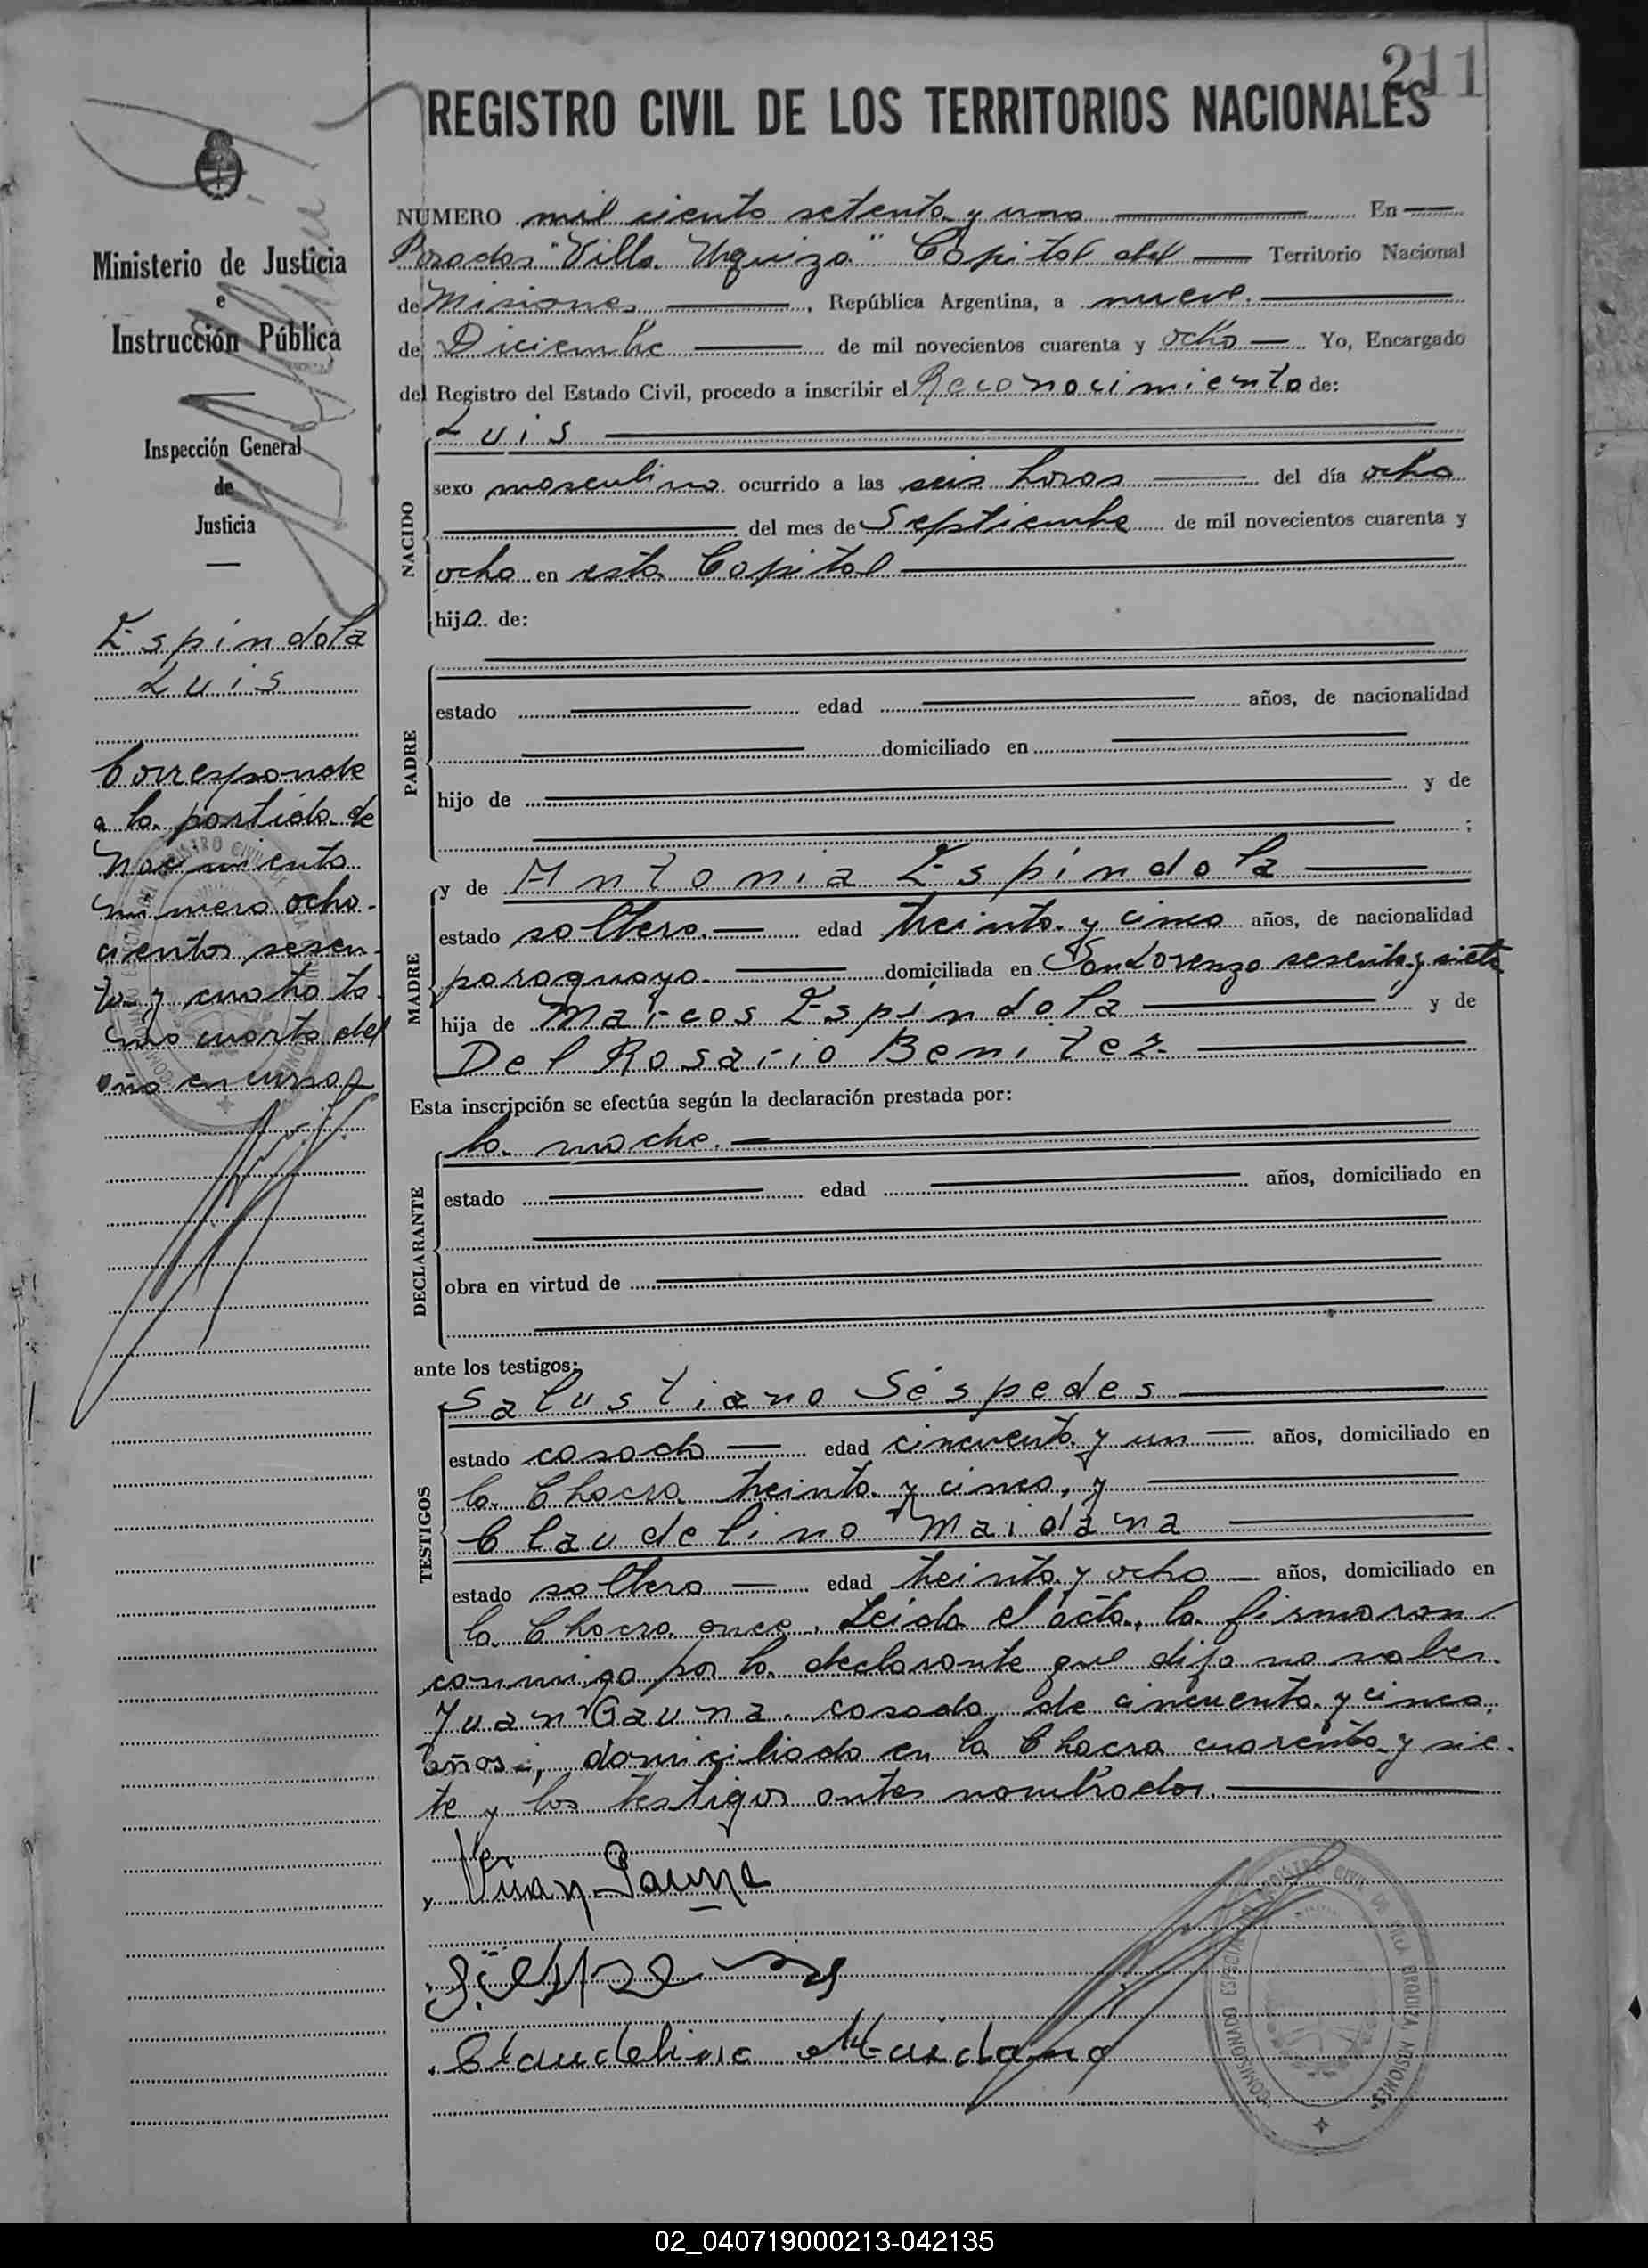 211
REGISTRO CIVIL DE LOS TERRITORIOS NACIONALES
Ministerio de Justicia
e
Instrucción Pública
Inspección General
de
Justicia
Espíndola
Luis
Corresponde
a la partida de
Nacimiento
número ocho-
cientos sesen-
ta y cuatro to-
mo cuarto del
año en curso
NUMERO mil ciento setenta y uno En
Posadas "Villa Urquiza" Capital del Territorio Nacional
de Misiones, República Argentina, a nueve
de Diciembre de mil novecientos cuarenta y ocho Yo, Encargado
del Registro del Estado Civil, procedo a inscribir el Reconocimiento de:
NACIDO
Luis
sexo masculino ocurrido a las seis horas del día ocho
del mes de Septiembre de mil novecientos cuarenta y
ocho en esta Capital
hijo de:
PADRE
estado edad años, de nacionalidad
domiciliado en
hijo de y de
;
MADRE
y de Antonia Espíndola
estado soltera. edad treinta y cinco años, de nacionalidad
paraguaya. domiciliada en San Lorenzo sesenta y siete
hija de Marcos Espíndola y de
Del Rosario Benitez.
Esta inscripción se efectúa según la declaración prestada por:
DECLARANTE
la madre.
estado edad años, domiciliado en
obra en virtud de
ante los testigos:
TESTIGOS
Salustiano Séspedes
estado casado edad cincuenta y un años, domiciliado en
la Chacra treinta y cinco, y
Claudelino Maidana
estado soltero edad treinta y ocho años, domiciliado en
la Chacra once. Leída el acta, la firmaron
conmigo por la declarante que dijo no saber
Juan Gauna. casado, de cincuenta y cinco
años, domiciliado en la Chacra cuarenta y sie-
te y los testigos antes nombrados.
Juan Gauna
Claudelino Maidana
COMISIONADO ESPECIAL REGISTRO CIVIL DE VILLA URQUIZA MISIONES
02_040719000213-042135